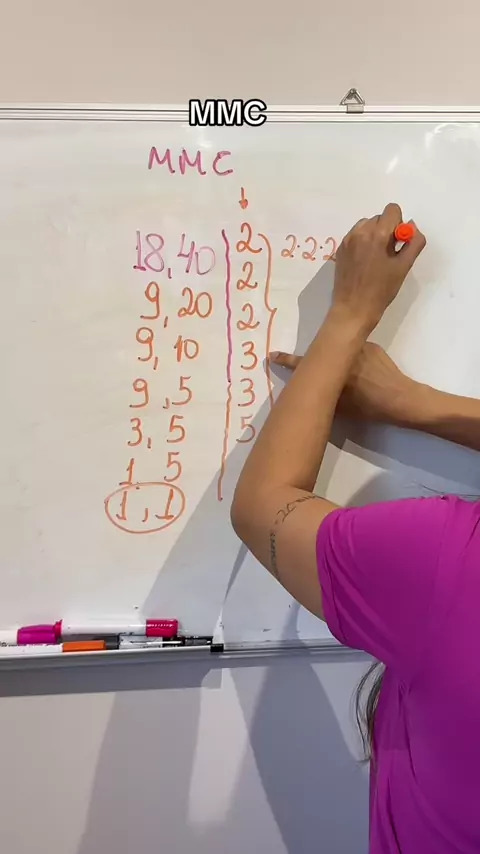 MMC
MMC
18,40 2 2·2·2
9,20 2
9,10 2
9,5 3
3,5 3
1 5 5
1,1